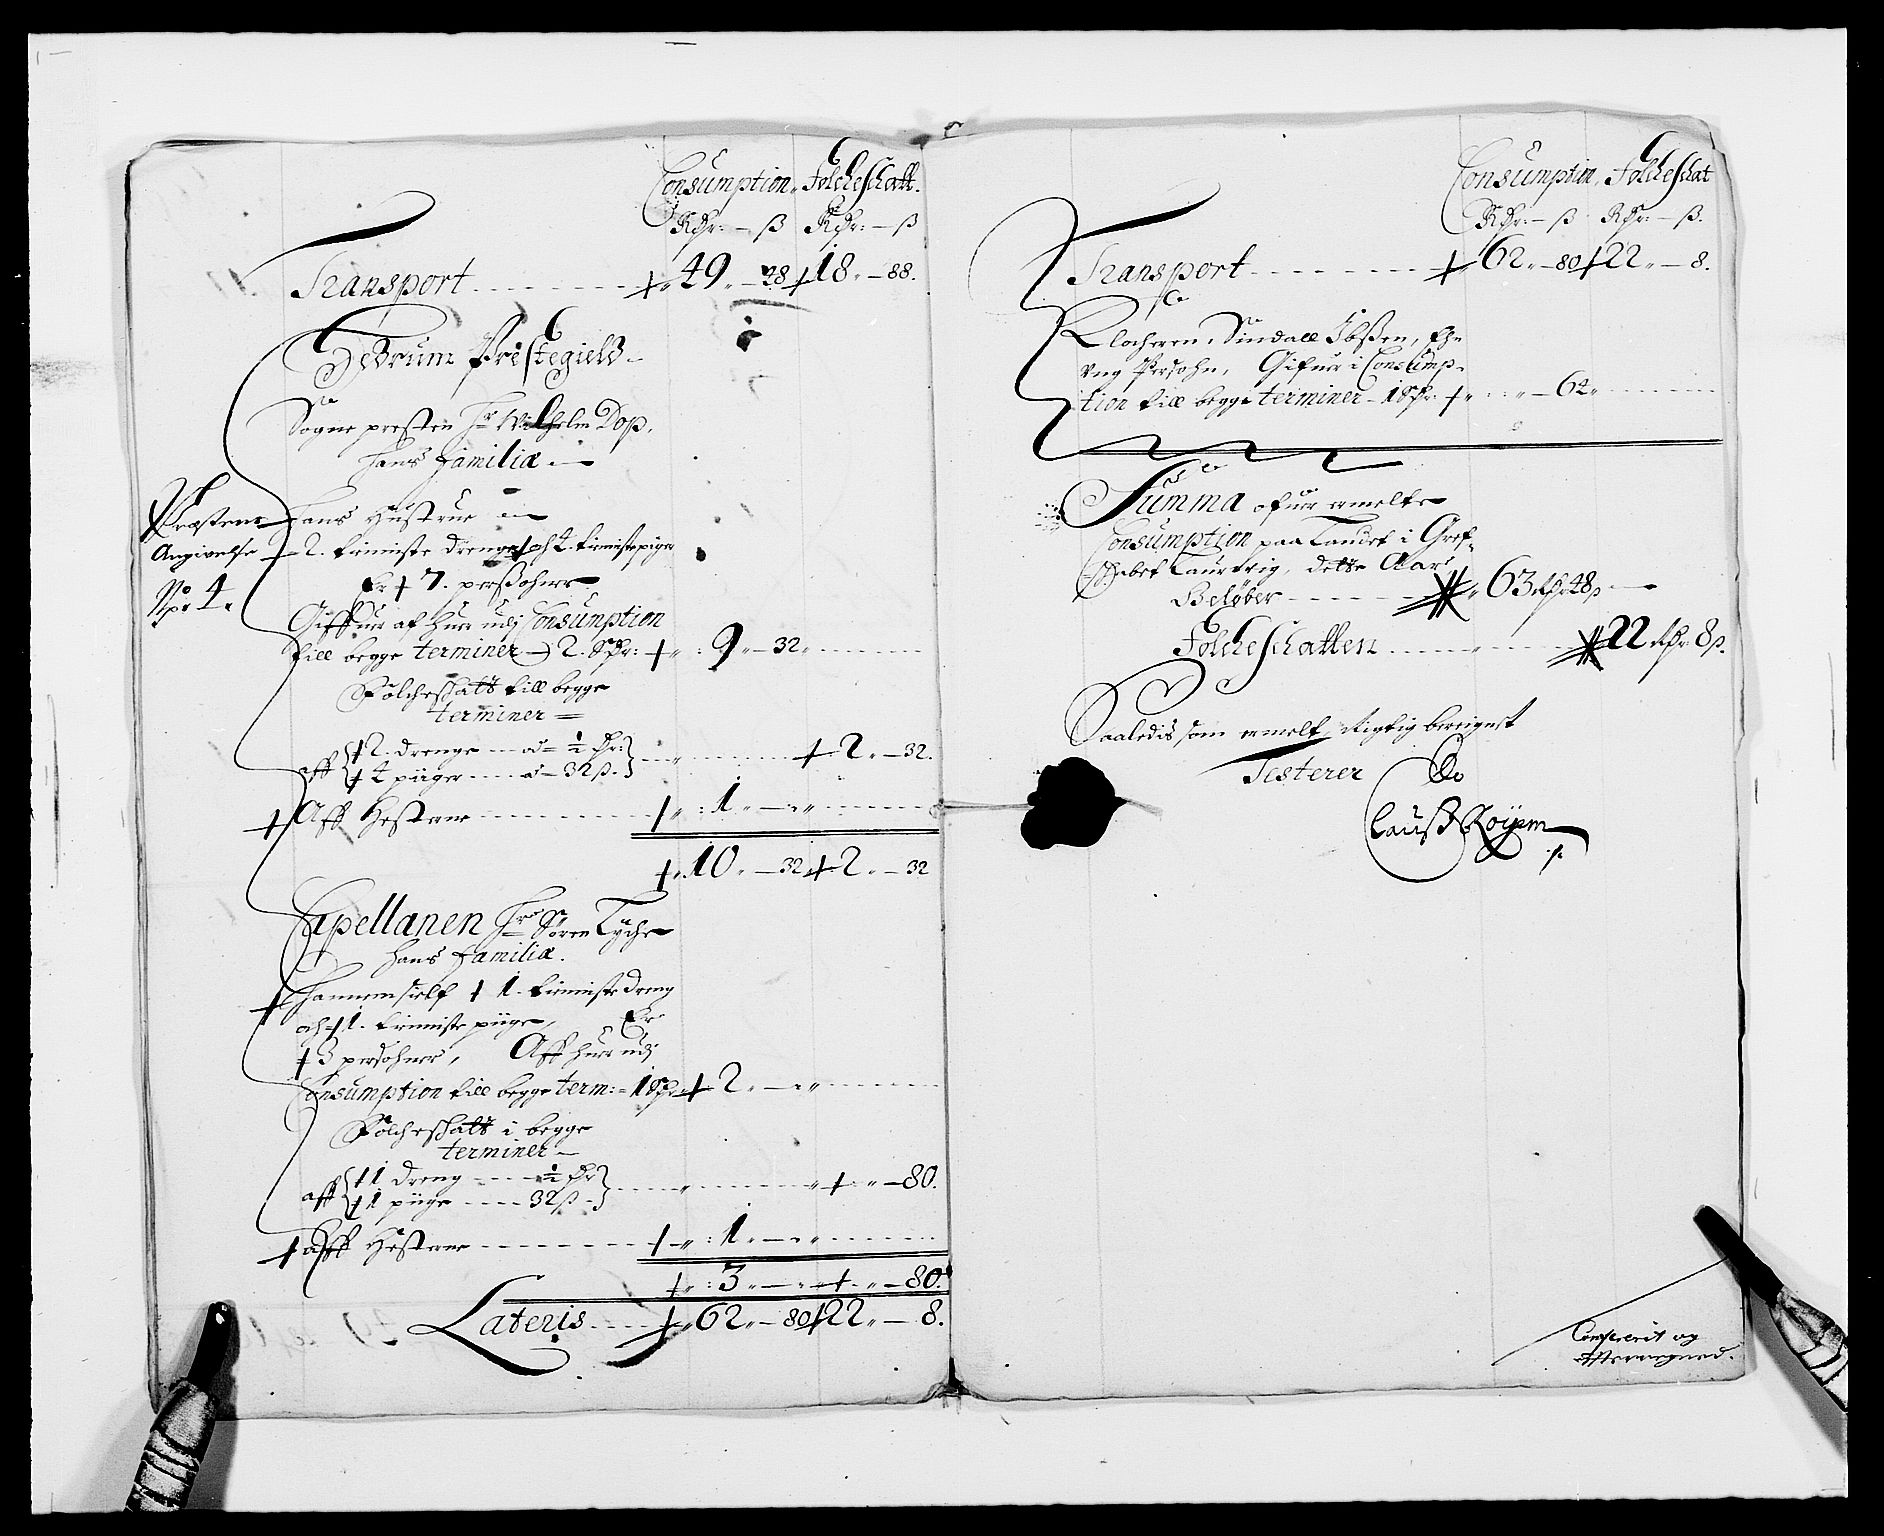 Consumption. Folcheschatt.
Rdr: — ß Rdr: — ß
Transport 49 — 48 18 — 88.
Hedrum Prestegield
Sogne presten Hr Wilhelm Dop,
hans familiæ
Præstens Hans Hustrue
Angivelse 2. tienniste drenge, och 4. tienniste piger
No 4. Er 7. persohner
Giffuer af huer udj Consumption
till begge terminer 2. Rdr: 9 — 32
Folcheschatt till begge
terminer
aff 2. drenge — ad ½ dr:
4 piiger — ad 32 ß. 2 — 32.
Aff Hestene 1
10 — 32 2 — 32
Capellanen Hr Søren Lyche
hans familiæ.
hannem sielf 1. tienniste dreng
och 1. tienniste piige, Er
3 persohner, Aff huer udj
Consumption till begge term: 1 Rdr 2
Folcheschatt i begge
terminer
aff 1 dreng ½ dr
1 piige 32 ß 80.
aff Hestene 1
3 80.
Lateris 62 — 80 22 — 8.
Consumption. Folcheschat
Rdr: — ß Rdr: — ß.
Transport 62 — 80 22 — 8.
Klocheren, Sindall Ibsen, Ehn
ung Persohn, Gifuer i Consump-
tion till begge terminer 1 Rdr 64
Summa ofuer ermelte
Consumption paa Landet i Gref-
schabet Laurwig, dette Aar
Beløber 63 Rdr 48 ß
Folcheschatten 22 Rdr 8 ß.
Saaledis som ermelt, Rigtig bereignet
Testerer
Clauß Røyem
Confererit og